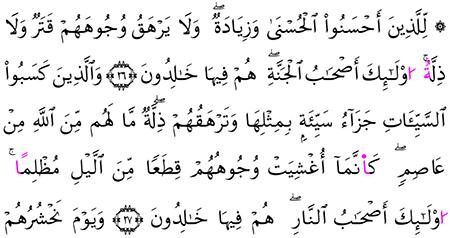 ۞ لِّلَّذِينَ أَحْسَنُوا۟ ٱلْحُسْنَىٰ وَزِيَادَةٌۖ وَلَا يَرْهَقُ وُجُوهَهُمْ قَتَرٌ وَلَا
ذِلَّةٌۚ اوْلَٰٓئِكَ أَصْحَٰبُ ٱلْجَنَّةِۖ هُمْ فِيهَا خَٰلِدُونَ ۝٢٦ وَٱلَّذِينَ كَسَبُوا۟
ٱلسَّيِّـَٔاتِ جَزَآءُ سَيِّئَةِۭ بِمِثْلِهَا وَتَرْهَقُهُمْ ذِلَّةٌۖ مَّا لَهُم مِّنَ ٱللَّهِ مِنْ
عَاصِمٖۖ كَأَنَّمَآ أُغْشِيَتْ وُجُوهُهُمْ قِطَعًا مِّنَ ٱلَّيْلِ مُظْلِمًاۚ
اوْلَٰٓئِكَ أَصْحَٰبُ ٱلنَّارِۖ هُمْ فِيهَا خَٰلِدُونَ ۝٢٧ وَيَوْمَ نَحْشُرُهُمْ